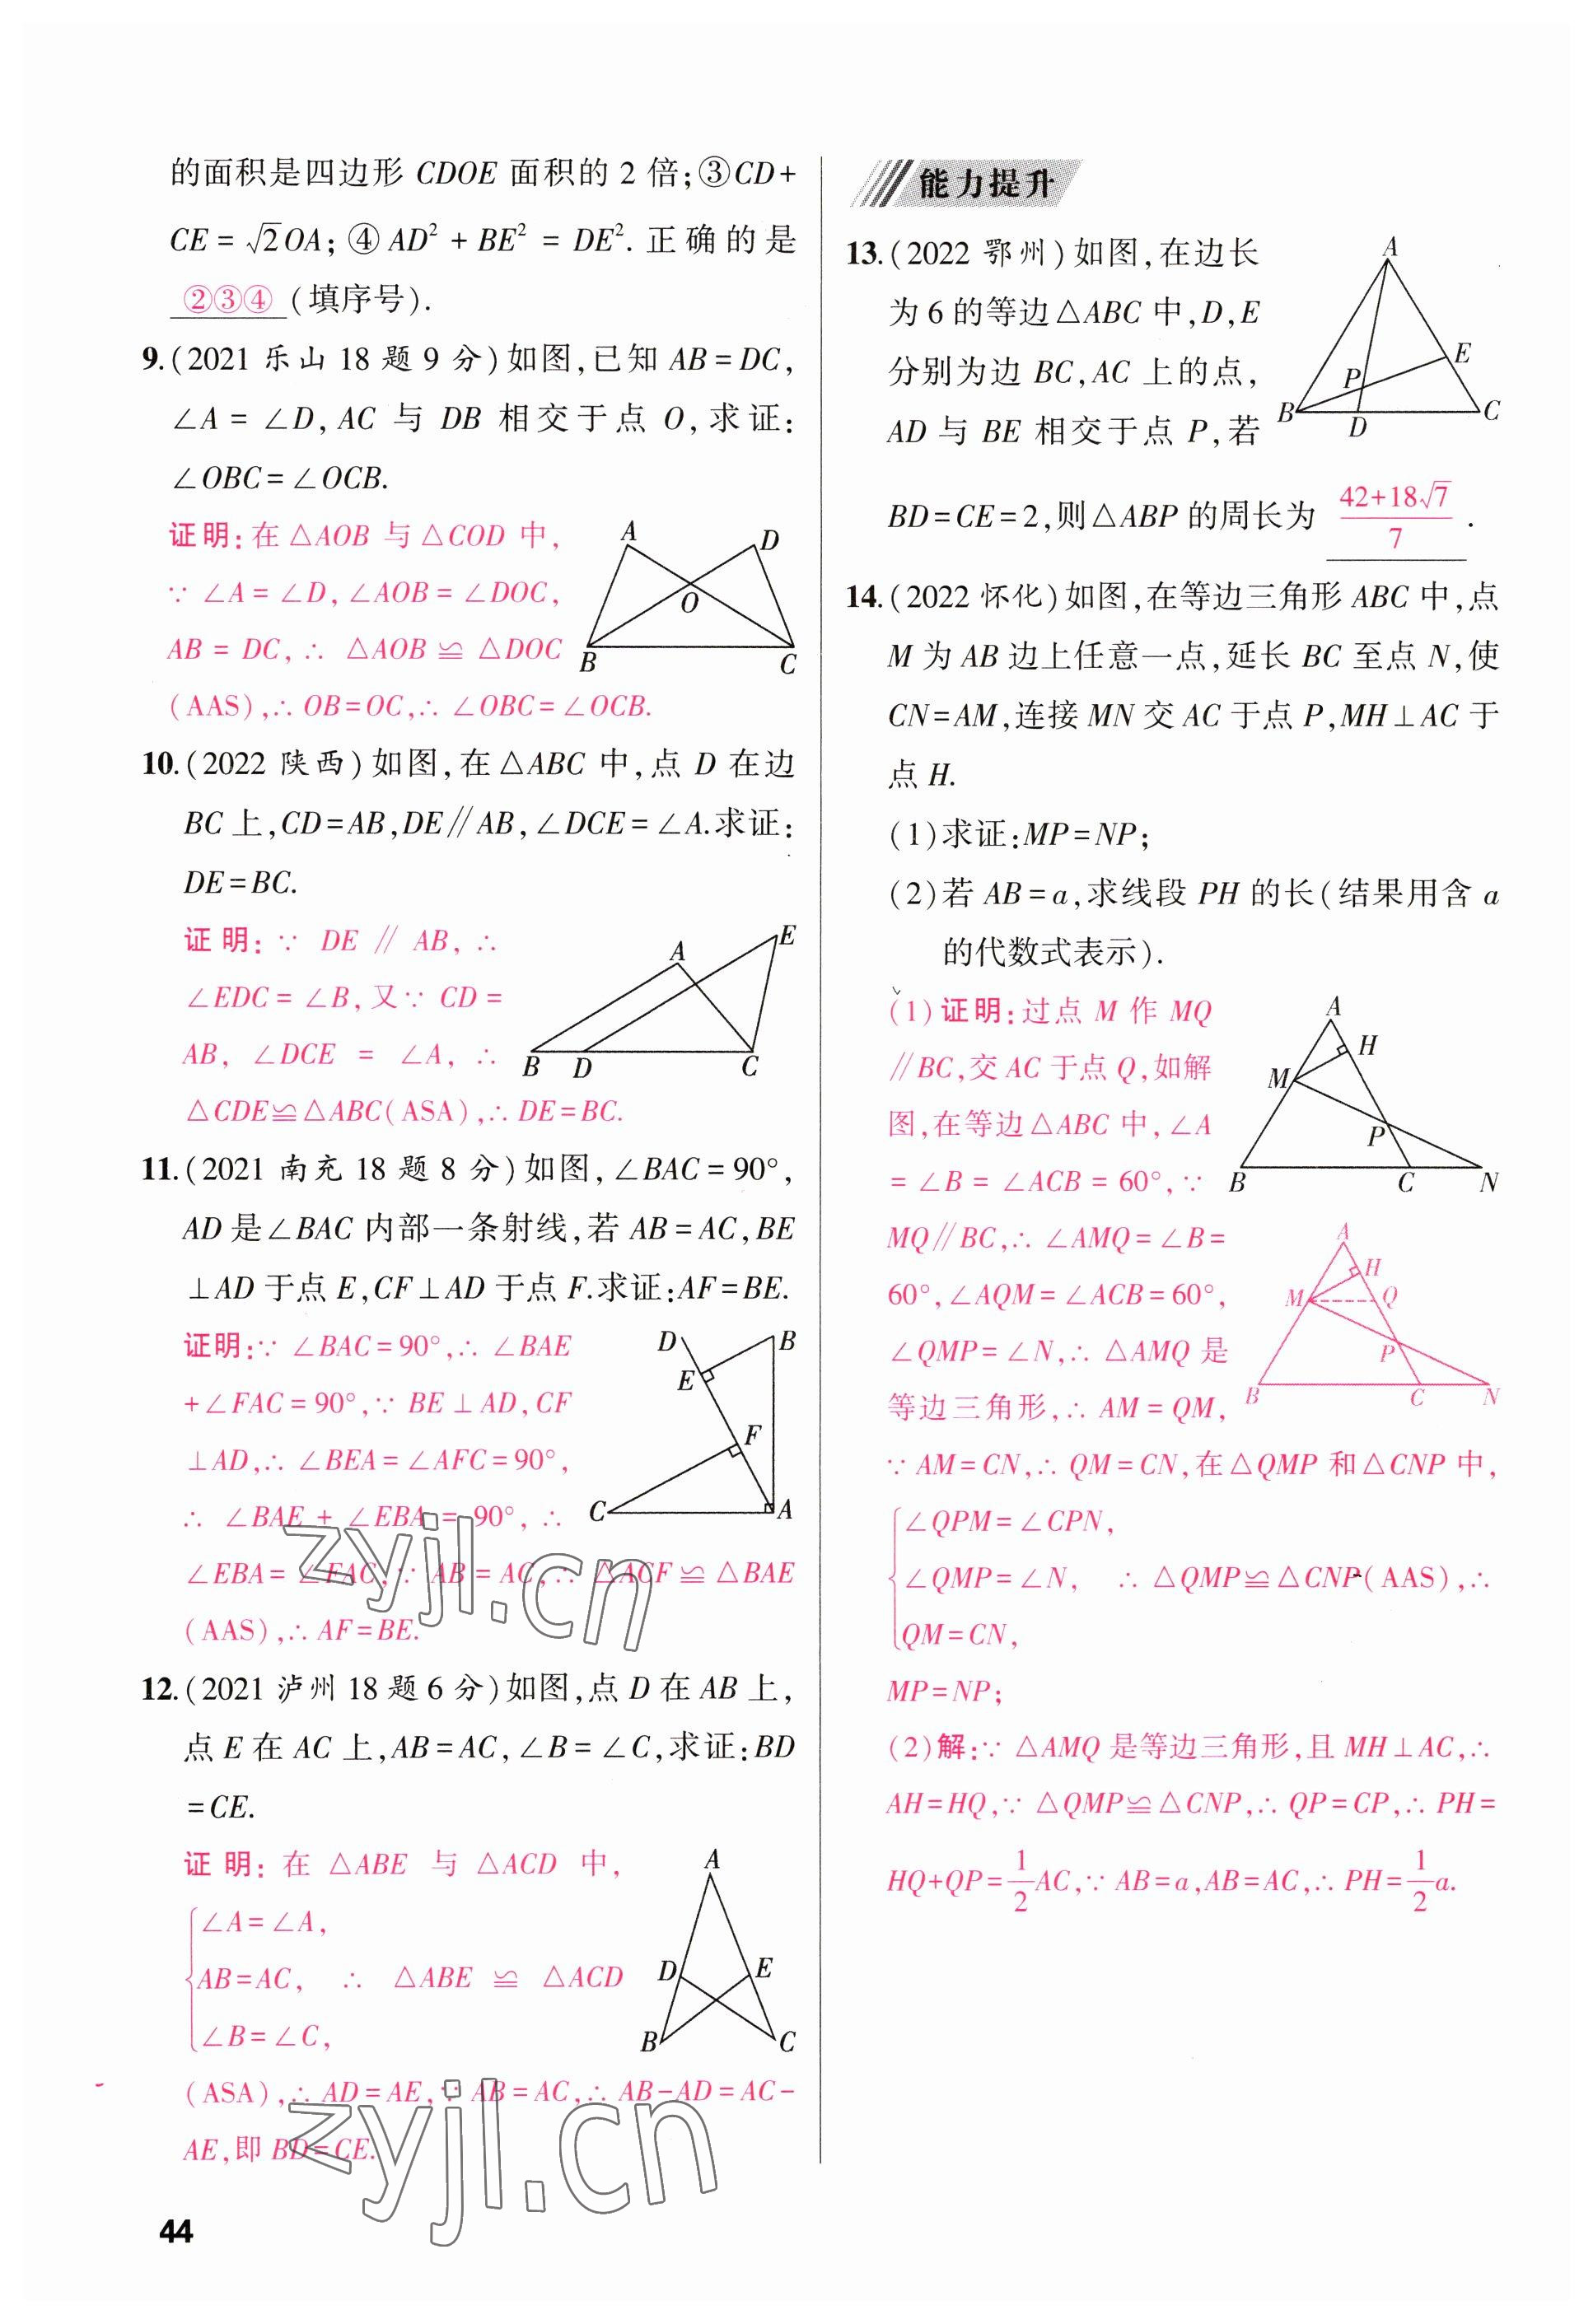 的面积是四边形 CDOE 面积的 2 倍;③CD+
CE=√2OA;④AD²+BE²=DE².正确的是
②③④(填序号).
9.(2021 乐山 18 题 9 分)如图,已知 AB=DC,
∠A=∠D,AC 与 DB 相交于点 O,求证:
∠OBC=∠OCB.
证明:在△AOB 与△COD 中,
∵∠A=∠D,∠AOB=∠DOC,
AB=DC,∴△AOB≌△DOC
(AAS),∴OB=OC,∴∠OBC=∠OCB.
A
D
O
B
C
10.(2022 陕西)如图,在△ABC 中,点 D 在边
BC 上,CD=AB,DE∥AB,∠DCE=∠A.求证:
DE=BC.
证明:∵DE∥AB,∴
∠EDC=∠B,又∵CD=
AB,∠DCE=∠A,∴
△CDE≌△ABC(ASA),∴DE=BC.
A
E
B
D
C
11.(2021 南充 18 题 8 分)如图,∠BAC=90°,
AD 是∠BAC 内部一条射线,若 AB=AC,BE
⊥AD 于点 E,CF⊥AD 于点 F.求证:AF=BE.
证明:∵∠BAC=90°,∴∠BAE
+∠FAC=90°,∵BE⊥AD,CF
⊥AD,∴∠BEA=∠AFC=90°,
∴∠BAE+∠EBA=90°,∴
∠EBA=∠FAC,∵AB=AC,∴△ACF≌△BAE
(AAS),∴AF=BE.
D
B
E
F
C
A
zyjl.cn
12.(2021 泸州 18 题 6 分)如图,点 D 在 AB 上,
点 E 在 AC 上,AB=AC,∠B=∠C,求证:BD
=CE.
证明:在△ABE 与△ACD 中,
∠A=∠A,
AB=AC, ∴△ABE≌△ACD
∠B=∠C,
(ASA),∴AD=AE,∵AB=AC,∴AB-AD=AC-
AE,即 BD=CE.
A
D
E
B
C
zyjl.cn
44
能力提升
13.(2022 鄂州)如图,在边长
为 6 的等边△ABC 中,D,E
分别为边 BC,AC 上的点,
AD 与 BE 相交于点 P,若
BD=CE=2,则△ABP 的周长为 (42+18√7)/7 .
A
E
P
B
D
C
14.(2022 怀化)如图,在等边三角形 ABC 中,点
M 为 AB 边上任意一点,延长 BC 至点 N,使
CN=AM,连接 MN 交 AC 于点 P,MH⊥AC 于
点 H.
(1)求证:MP=NP;
(2)若 AB=a,求线段 PH 的长(结果用含 a
的代数式表示).
(1)证明:过点 M 作 MQ
∥BC,交 AC 于点 Q,如解
图,在等边△ABC 中,∠A
=∠B=∠ACB=60°,∵
MQ∥BC,∴∠AMQ=∠B=
60°,∠AQM=∠ACB=60°,
∠QMP=∠N,∴△AMQ 是
等边三角形,∴AM=QM,
∵AM=CN,∴QM=CN,在△QMP 和△CNP 中,
∠QPM=∠CPN,
∠QMP=∠N, ∴△QMP≌△CNP(AAS),∴
QM=CN,
MP=NP;
(2)解:∵△AMQ 是等边三角形,且 MH⊥AC,∴
AH=HQ,∵△QMP≌△CNP,∴QP=CP,∴PH=
HQ+QP=1/2AC,∵AB=a,AB=AC,∴PH=1/2a.
A
H
M
P
B
C
N
A
H
M
Q
P
B
C
N